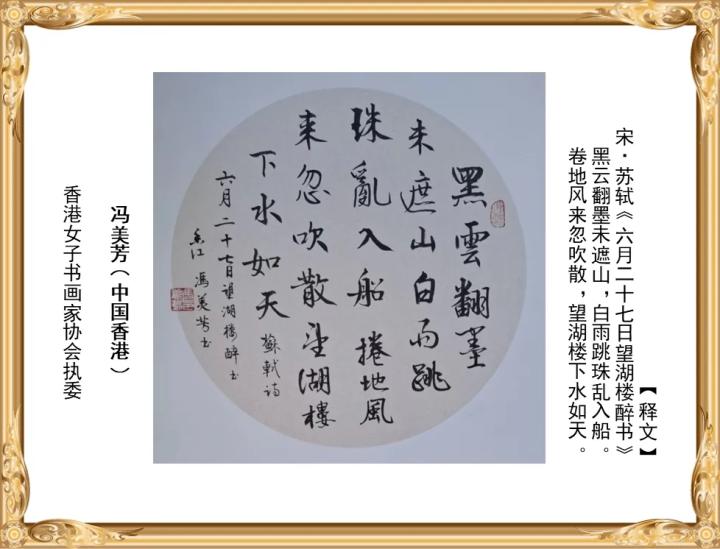 【释文】
宋·苏轼《六月二十七日望湖楼醉书》
黑云翻墨未遮山，白雨跳珠乱入船。
卷地风来忽吹散，望湖楼下水如天。
黑雲翻墨
未遮山白雨跳
珠亂入船捲地風
来忽吹散望湖樓
下水如天 蘇軾诗
六月二十七日望湖楼醉书
香江 馮美芳书
冯美芳（中国香港）
香港女子书画家协会执委